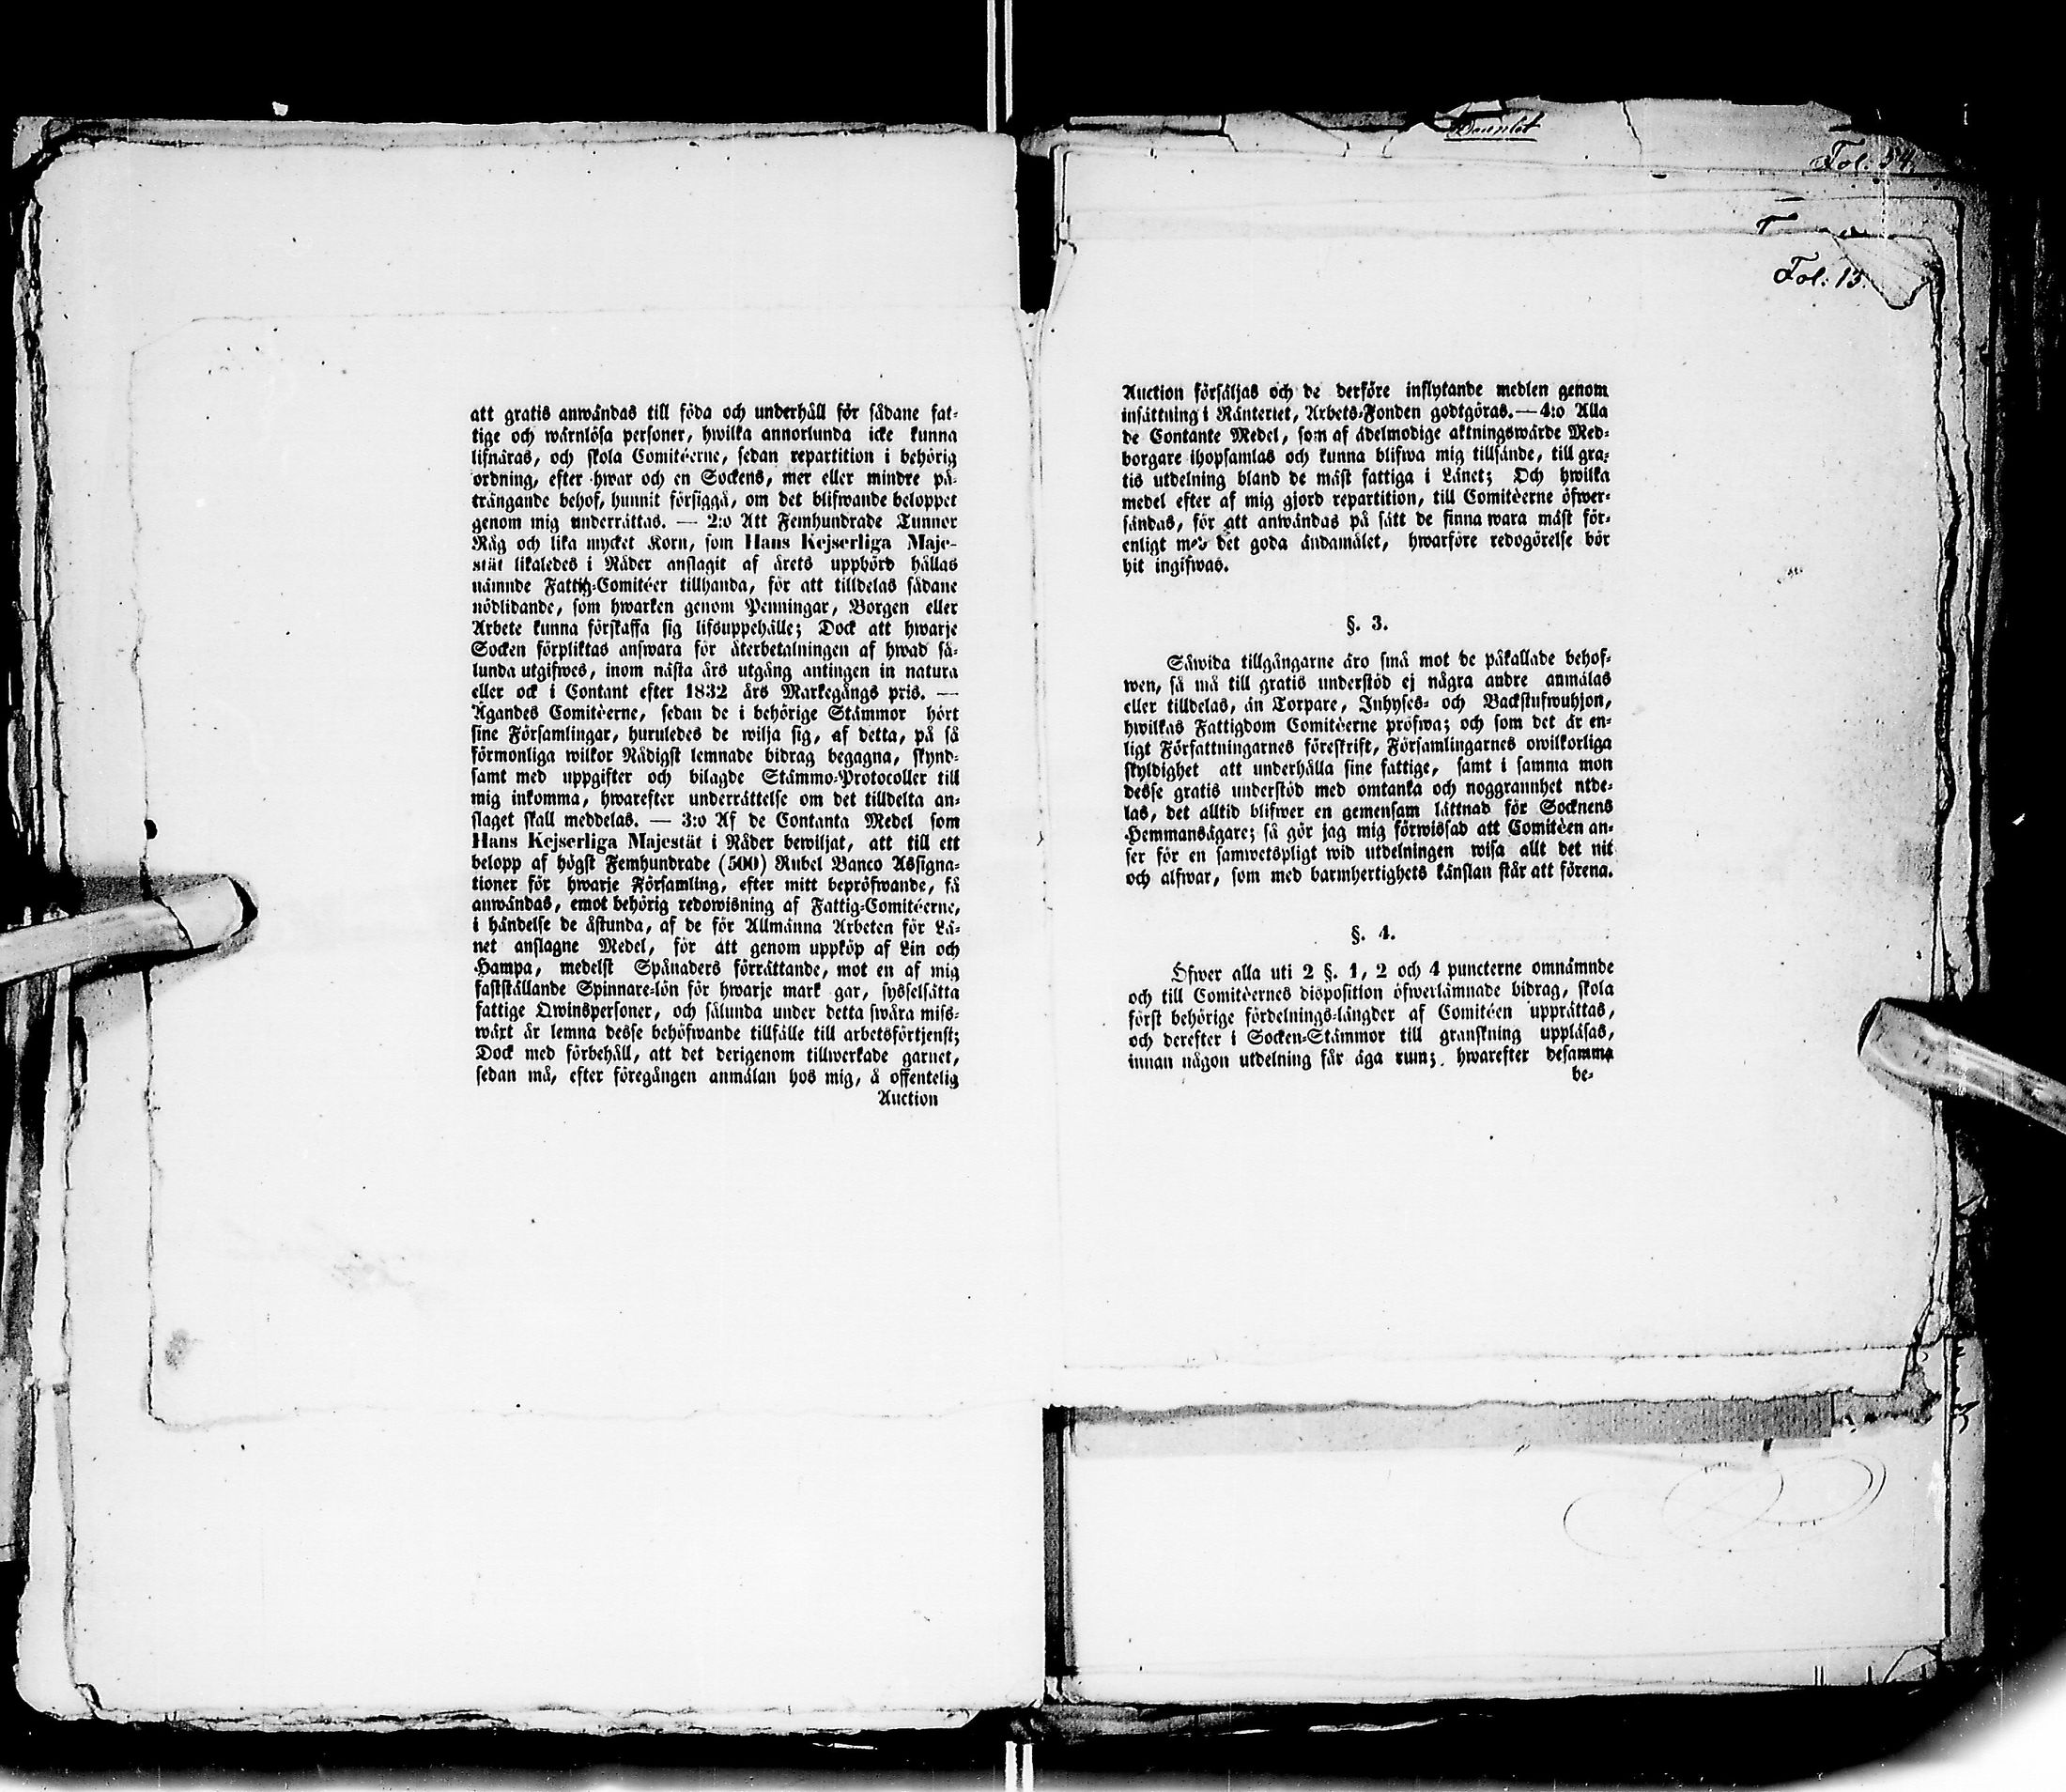 att gratis anwändas till föda och underhåll för sådane fat-
tige och wärnlösa personer, hwilka annorlunda icke kunna
lifnäras, och skola Comitéerne, sedan repartition i behörig
ordning, efter hwar och en Sockens, mer eller mindre på-
trängande behof, hunnit försiggå, om det blifwande beloppet
genom mig underrättas. — 2:o Att Femhundrade Tunnor
Råg och lika mycket Korn, som Hans Kejserliga Maje-
stät likaledes i Nåder anslagit af årets uppbörd hållas
nämnde Fattig-Comitéer tillhanda, för att tilldelas sådane
nödlidande, som hwarken genom Penningar, Borgen eller
Arbete kunna förskaffa sig lifsuppehälle; Dock att hwarje
Socken förpliktas answara för återbetalningen af hwad så-
lunda utgifwes, inom nästa års utgång antingen in natura
eller ock i Contant efter 1832 års Markegångs pris. —
Ägandes Comitéerne, sedan de i behörige Stämmor hört
sine Församlingar, huruledes de wilja sig, af detta, på så
förmonliga wilkor Nådigst lemnade bidrag begagna, skynd-
samt med uppgifter och bilagde Stämmo-Protocoller till
mig inkomma, hwarefter underrättelse om det tilldelta an-
slaget skall meddelas. — 3:o Af de Contanta Medel som
Hans Kejserliga Majestät i Nåder bewiljat, att till ett
belopp af högst Femhundrade (500) Rubel Banco Assigna-
tioner för hwarje Församling, efter mitt bepröfwande, få
anwändas, emot behörig redowisning af Fattig-Comitéerne,
i händelse de åstunda, af de för Allmänna Arbeten för Lä-
net anslagne Medel, för att genom uppköp af Lin och
Hampa, medelst Spånaders förrättande, mot en af mig
fastställande Spinnare-lön för hwarje mark gar, sysselsätta
fattige Qwinspersoner, och sålunda under detta swåra miss-
wäxt år lemna desse behöfwande tillfälle till arbetsförtjenst;
Dock med förbehåll, att det derigenom tillwerkade garnet,
sedan må, efter föregången anmälan hos mig, å offentelig
Auction
Daunlot
Fol. 54
Fol: 15.
Auction försäljas och de derföre inflytande medlen genom
insättning i Ränteriet, Arbets-Fonden godtgöras.—4:o Alla
de Contante Medel, som af ädelmodige aktningswärde Med-
borgare ihopsamlas och kunna blifwa mig tillsände, till gra-
tis utdelning bland de mäst fattiga i Länet; Och hwilka
medel efter af mig gjord repartition, till Comitéerne öfwer-
sändas, för att anwändas på sätt de finna wara mäst för-
enligt med det goda ändamålet, hwarföre redogörelse bör
hit ingifwas.
§. 3.
Såwida tillgångarne äro små mot de påkallade behof-
wen, så må till gratis understöd ej några andre anmälas
eller tilldelas, än Torpare, Inhyses- och Backstufwuhjon,
hwilkas Fattigdom Comitéerne pröfwa; och som det är en-
ligt Författningarnes föreskrift, Församlingarnes owilkorliga
skyldighet att underhålla sine fattige, samt i samma mon
desse gratis understöd med omtanka och noggrannhet ntde-
las, det alltid blifwer en gemensam lättnad för Socknens
Hemmansägare; så gör jag mig förwissad att Comitéen an-
ser för en samwetspligt wid utdelningen wisa allt det nit
och alfwar, som med barmhertighets känslan står att förena.
§. 4.
Öfwer alla uti 2 §. 1, 2 och 4 puncterne omnämnde
och till Comitéernes disposition öfwerlämnade bidrag, skola
först behörige fördelnings-längder af Comitéen upprättas,
och derefter i Socken-Stämmor till granskning uppläsas,
innan någon utdelning får äga rum; hwarefter desamma
be-